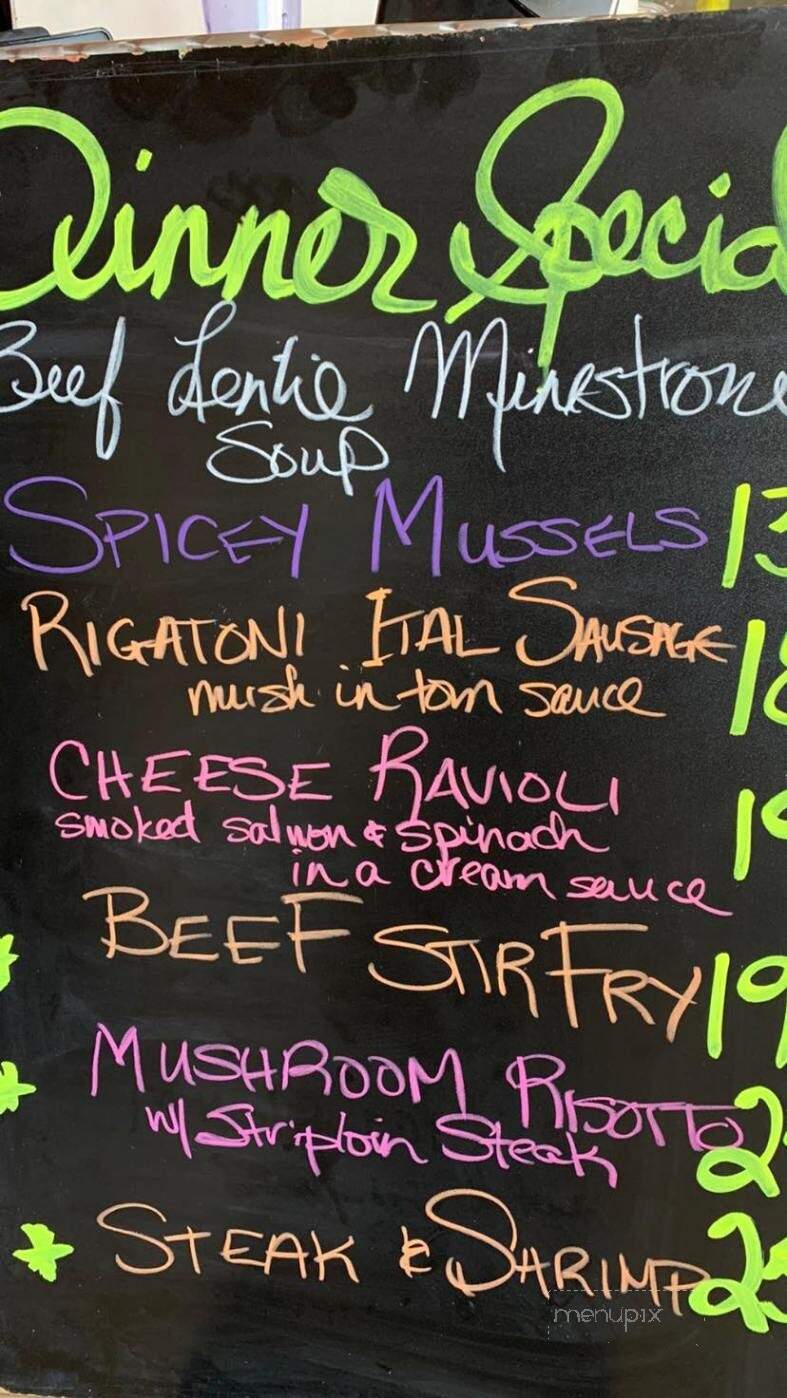 Dinner Specia
Beef Lentil Minestrone
Soup
SPICEY MUSSELS 13
RIGATONI ITAL SAUSAGE 18
mush in tom sauce
CHEESE RAVIOLI 19
smoked salmon & spinach
in a cream sauce
BEEF STIR FRY 19
MUSHROOM RISOTTO 2
w/ Striploin Steak
STEAK & SHRIMP 25
menupix